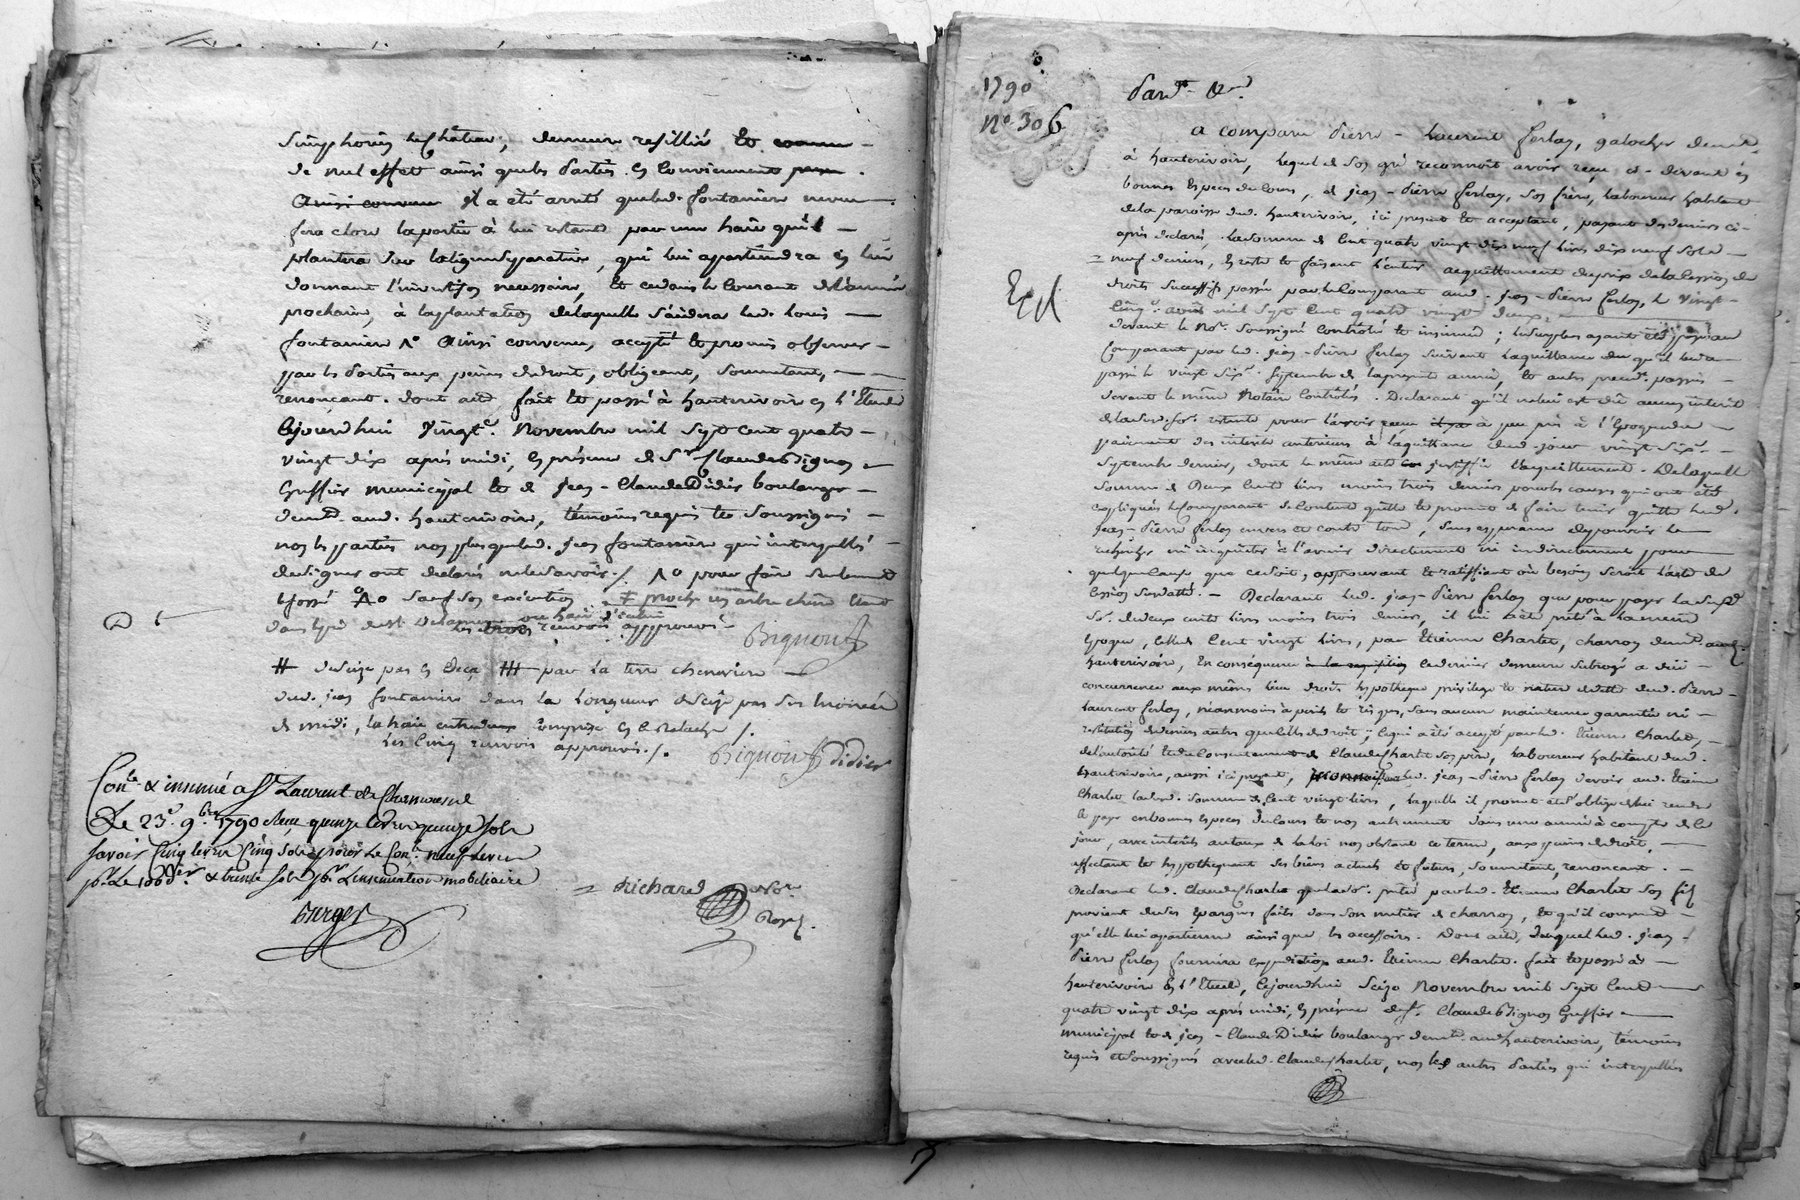 demeure resillié et
de nul effet ainsi que les parties en conviennent
Ainsi convenu il a été arrêté que led. fontanier neveu
fera clore la partie à lui restante par une haie qu'il
plantera sur la ligne separative, qui lui appartiendra en lui
donnant l'inversion necessaire, et ce dans le courant de l'année
prochaine, à la plantation de laquelle s'aidera led. Louis
fontanier Ainsi convenu, accepté et promis observer
par les parties aux peines de droit, obligeant, soumettant,
renonçant. dont acte fait et passé à hauterivoire en l'Etude
cejourd'hui vingt Novembre mil sept cent quatre
vingt dix après midi, en présence de Sr Claude Bignon
Greffier municipal et de jean-Claude Didier boulanger
demt. aud. hauterivoire, témoins requis et soussignés
non les parties non plus que led. jean fontanier qui interpellés
de signer ont déclaré ne le savoir ./. pour faire seulement
le fossé sauf son execution proche un arbre chêne étant
renvois approuvés Bignon
# de seize pas en deça ## par la terre cheneviere
dud. jean fontanier dans la longueur de seize pas
de midi, la haie entredeux comprise
Les cinq renvois approuvés ./. Bignon Didier
Conlé & insinué a St Laurent de Chamousset
Le 23e 9bre 1790 Reçu quinze livres quinze sols
savoir cinq livres cinq sols pour le Conle neuf livres
pr. Le 100e der & trente sols pr. L'insinuation mobiliaire
Berger
Richard Nore
Royl.
1790
No. 306
Pardt.
Exp
A comparu Pierre-Laurent ferlay, galocher demt.
à hauterivoire, lequel de son gré reconnoit avoir reçu ci-devant en
bonnes especes de cours, de jean-Pierre ferlay, son frère, laboureur habitant
de la paroisse dud. hauterivoire, ici present et acceptant, payant des deniers ci-
après declarés, la somme de cent quatre vingt dix neuf livres dix neuf sols
neuf deniers, en reste et faisant l'entier acquittement du prix de la cession de
droits successifs passée par le Comparant aud. jean-Pierre ferlay, le vingt-
cinq avril mil sept cent quatre vingt deux,
devant le Nore. soussigné contrôlée et insinuée; le surplus ayant été payé au
Comparant par led. jean-Pierre ferlay suivant la quittance
passée le vingt six Septembre de la presente année, et autres precedt. passées
devant le même Notaire contrôlées. Declarant qu'il ne lui est dû aucun interêt
de lad. so. restante pour l'avoir reçue à peu près à l'époque du
paiement des interêts anterieurs à la quittance dud. jour vingt six
Septembre dernier, dont le même acte justifie l'acquittement. De laquelle
somme de Deux cents livres moins trois deniers pour les causes qui ont été
expliquées le Comparant se contente quitte et promet de faire tenir quitte led.
jean-Pierre ferlay envers et contre tous, sans esperance de pouvoir le
rechercher ni inquiéter à l'avenir directement ni indirectement pour
quelque cause que ce soit, approuvant et ratifiant où besoin seroit l'acte de
cession susdatté. Declarant led. jean-Pierre ferlay que pour payer la susd.
So. de deux cents livres moins trois deniers, il lui a été prêté à la meme
époque, celle de cent vingt livres, par Etienne Charlet, charron demt. aud.
hauterivoire, En conséquence ce dernier demeure subrogé a düe
concurrence aux mêmes lieu droits hypotheque privilege et nature de dette dud. Pierre-
Laurent ferlay, néanmoins à perils et risques, sans aucune maintenue garantie ni
restitution de deniers autre que celles de droit; ce qui a été accepté par led. Etienne Charlet,
de l'autorité et du consentement de Claude Charlet son père, laboureur habitant dud.
hauterivoire, aussi ici present, led. jean-Pierre ferlay devoir aud. Etienne
Charlet lad. somme de cent vingt livres, laquelle il promet et s'oblige de lui rendre
et payer en bonnes especes de cours et non autrement dans une année à compter de ce
jour, avec interêts au taux de la loi nonobstant ce terme, aux peines de droit,
affectant et hypothequant ses biens actuels et futurs, soumettant, renonçant.
Declarant led. Claude Charlet que lad. so. prêtée par led. Etienne Charlet son fils
provient de ses épargnes faites dans son métier de charron, et qu'il consent
qu'elle lui appartienne ainsi que les accessoires. Dont acte, duquel led. jean-
Pierre ferlay fournira expedition aud. Etienne Charlet. fait et passé à
hauterivoire en l'Etude, cejourd'hui seize Novembre mil sept cent
quatre vingt dix après midi, en présence de Sr. Claude Bignon Greffier
municipal et de jean-Claude Didier boulanger demt. aud. hauterivoire, témoins
requis et soussignés avec led. Claude Charlet, non les autres parties qui interpellées